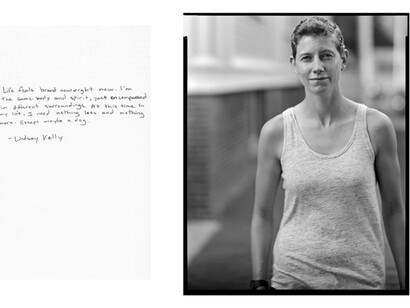 Life feels brand new right now. I'm
the same body and spirit, yet encompassed
in different surroundings. At this time in
my life, I need nothing less and nothing
more. Except maybe a dog.
- Lindsay Kelly